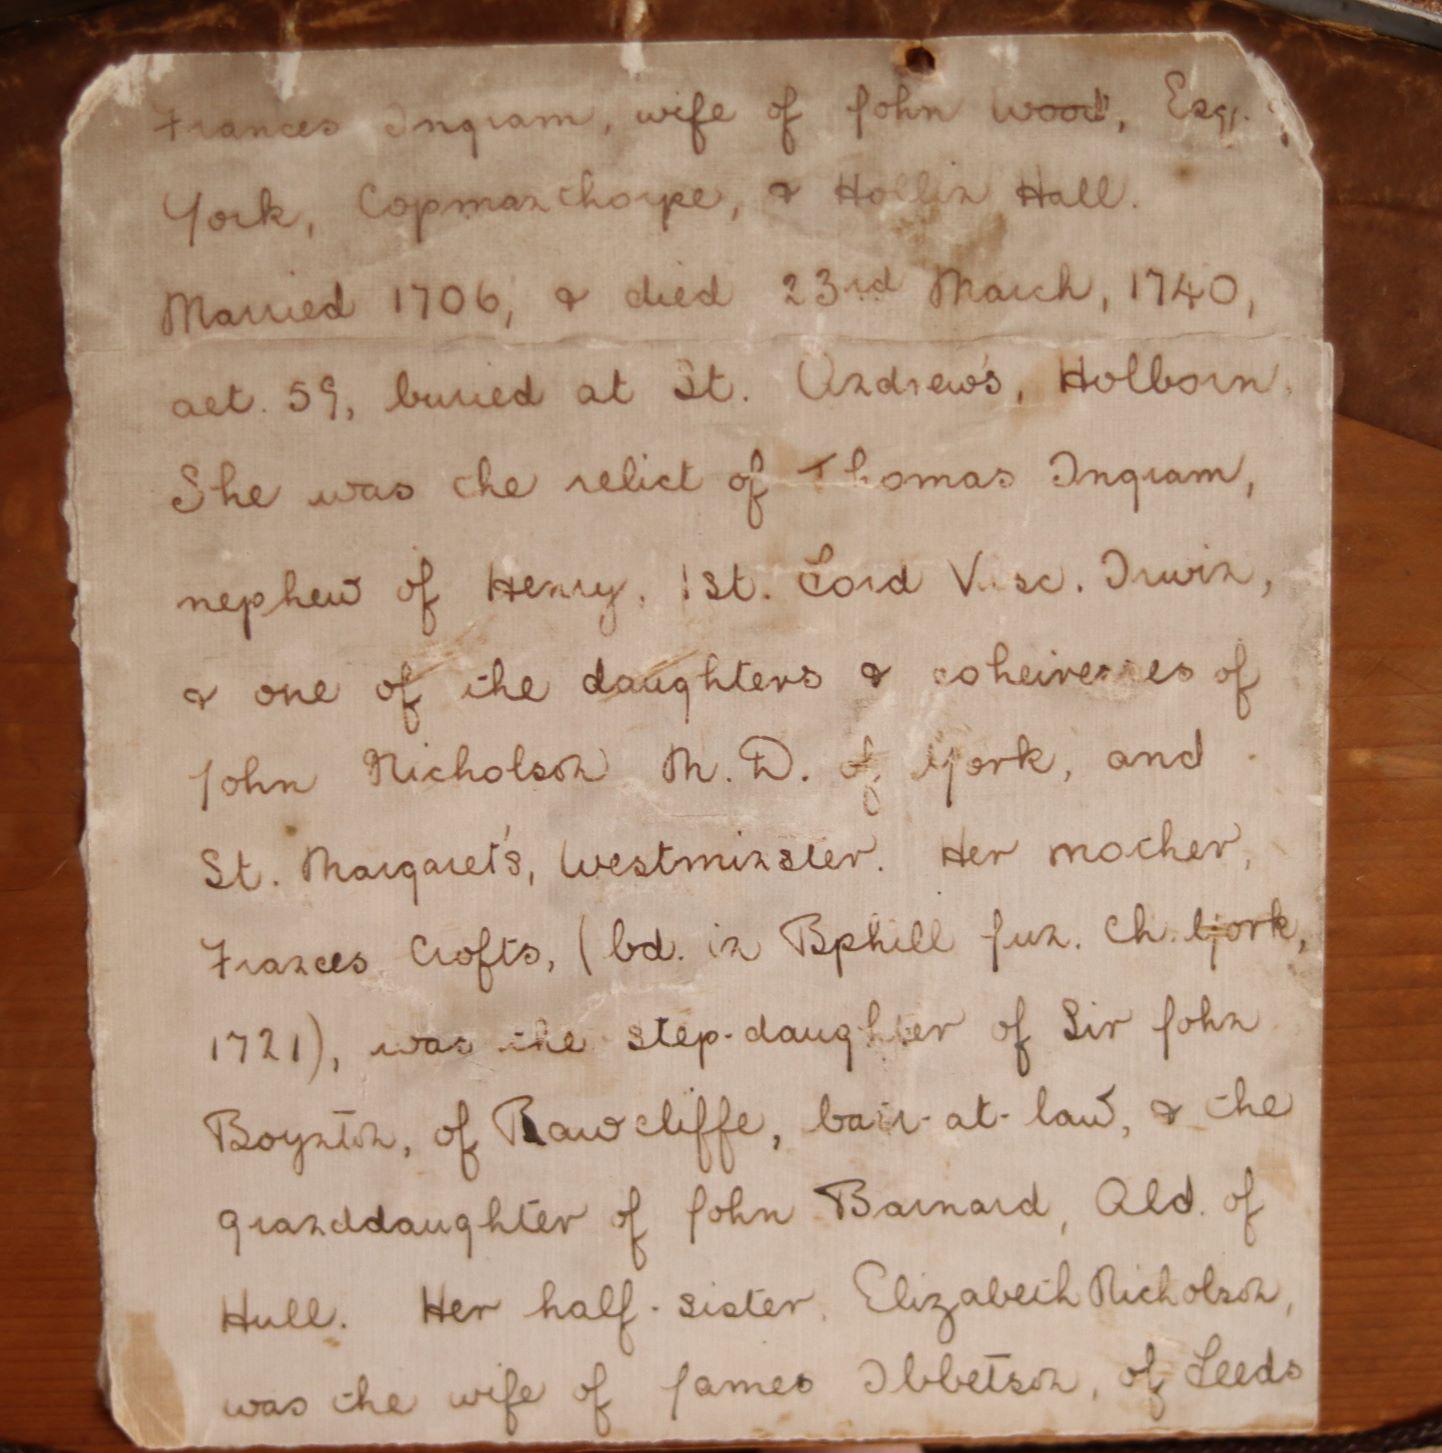 Frances Ingram, wife of John Wood, Esq. of
York, Copmanthorpe, & Hollin Hall.
Married 1706, & died 23rd March, 1740,
aet. 59, buried at St. Andrew's, Holborn.
She was the relict of Thomas Ingram,
nephew of Henry, 1st. Lord Visc. Irwin,
& one of the daughters & coheiresses of
John Nicholson M.D. of York, and
St. Margaret's, Westminster. Her mother,
Frances Crofts, (bd. in Bphill Jun. Ch. York,
1721), was the step-daughter of Sir John
Boynton, of Rawcliffe, barr-at-law, & the
granddaughter of John Barnard, Ald. of
Hull. Her half-sister, Elizabeth Nicholson,
was the wife of James Ibbetson, of Leeds